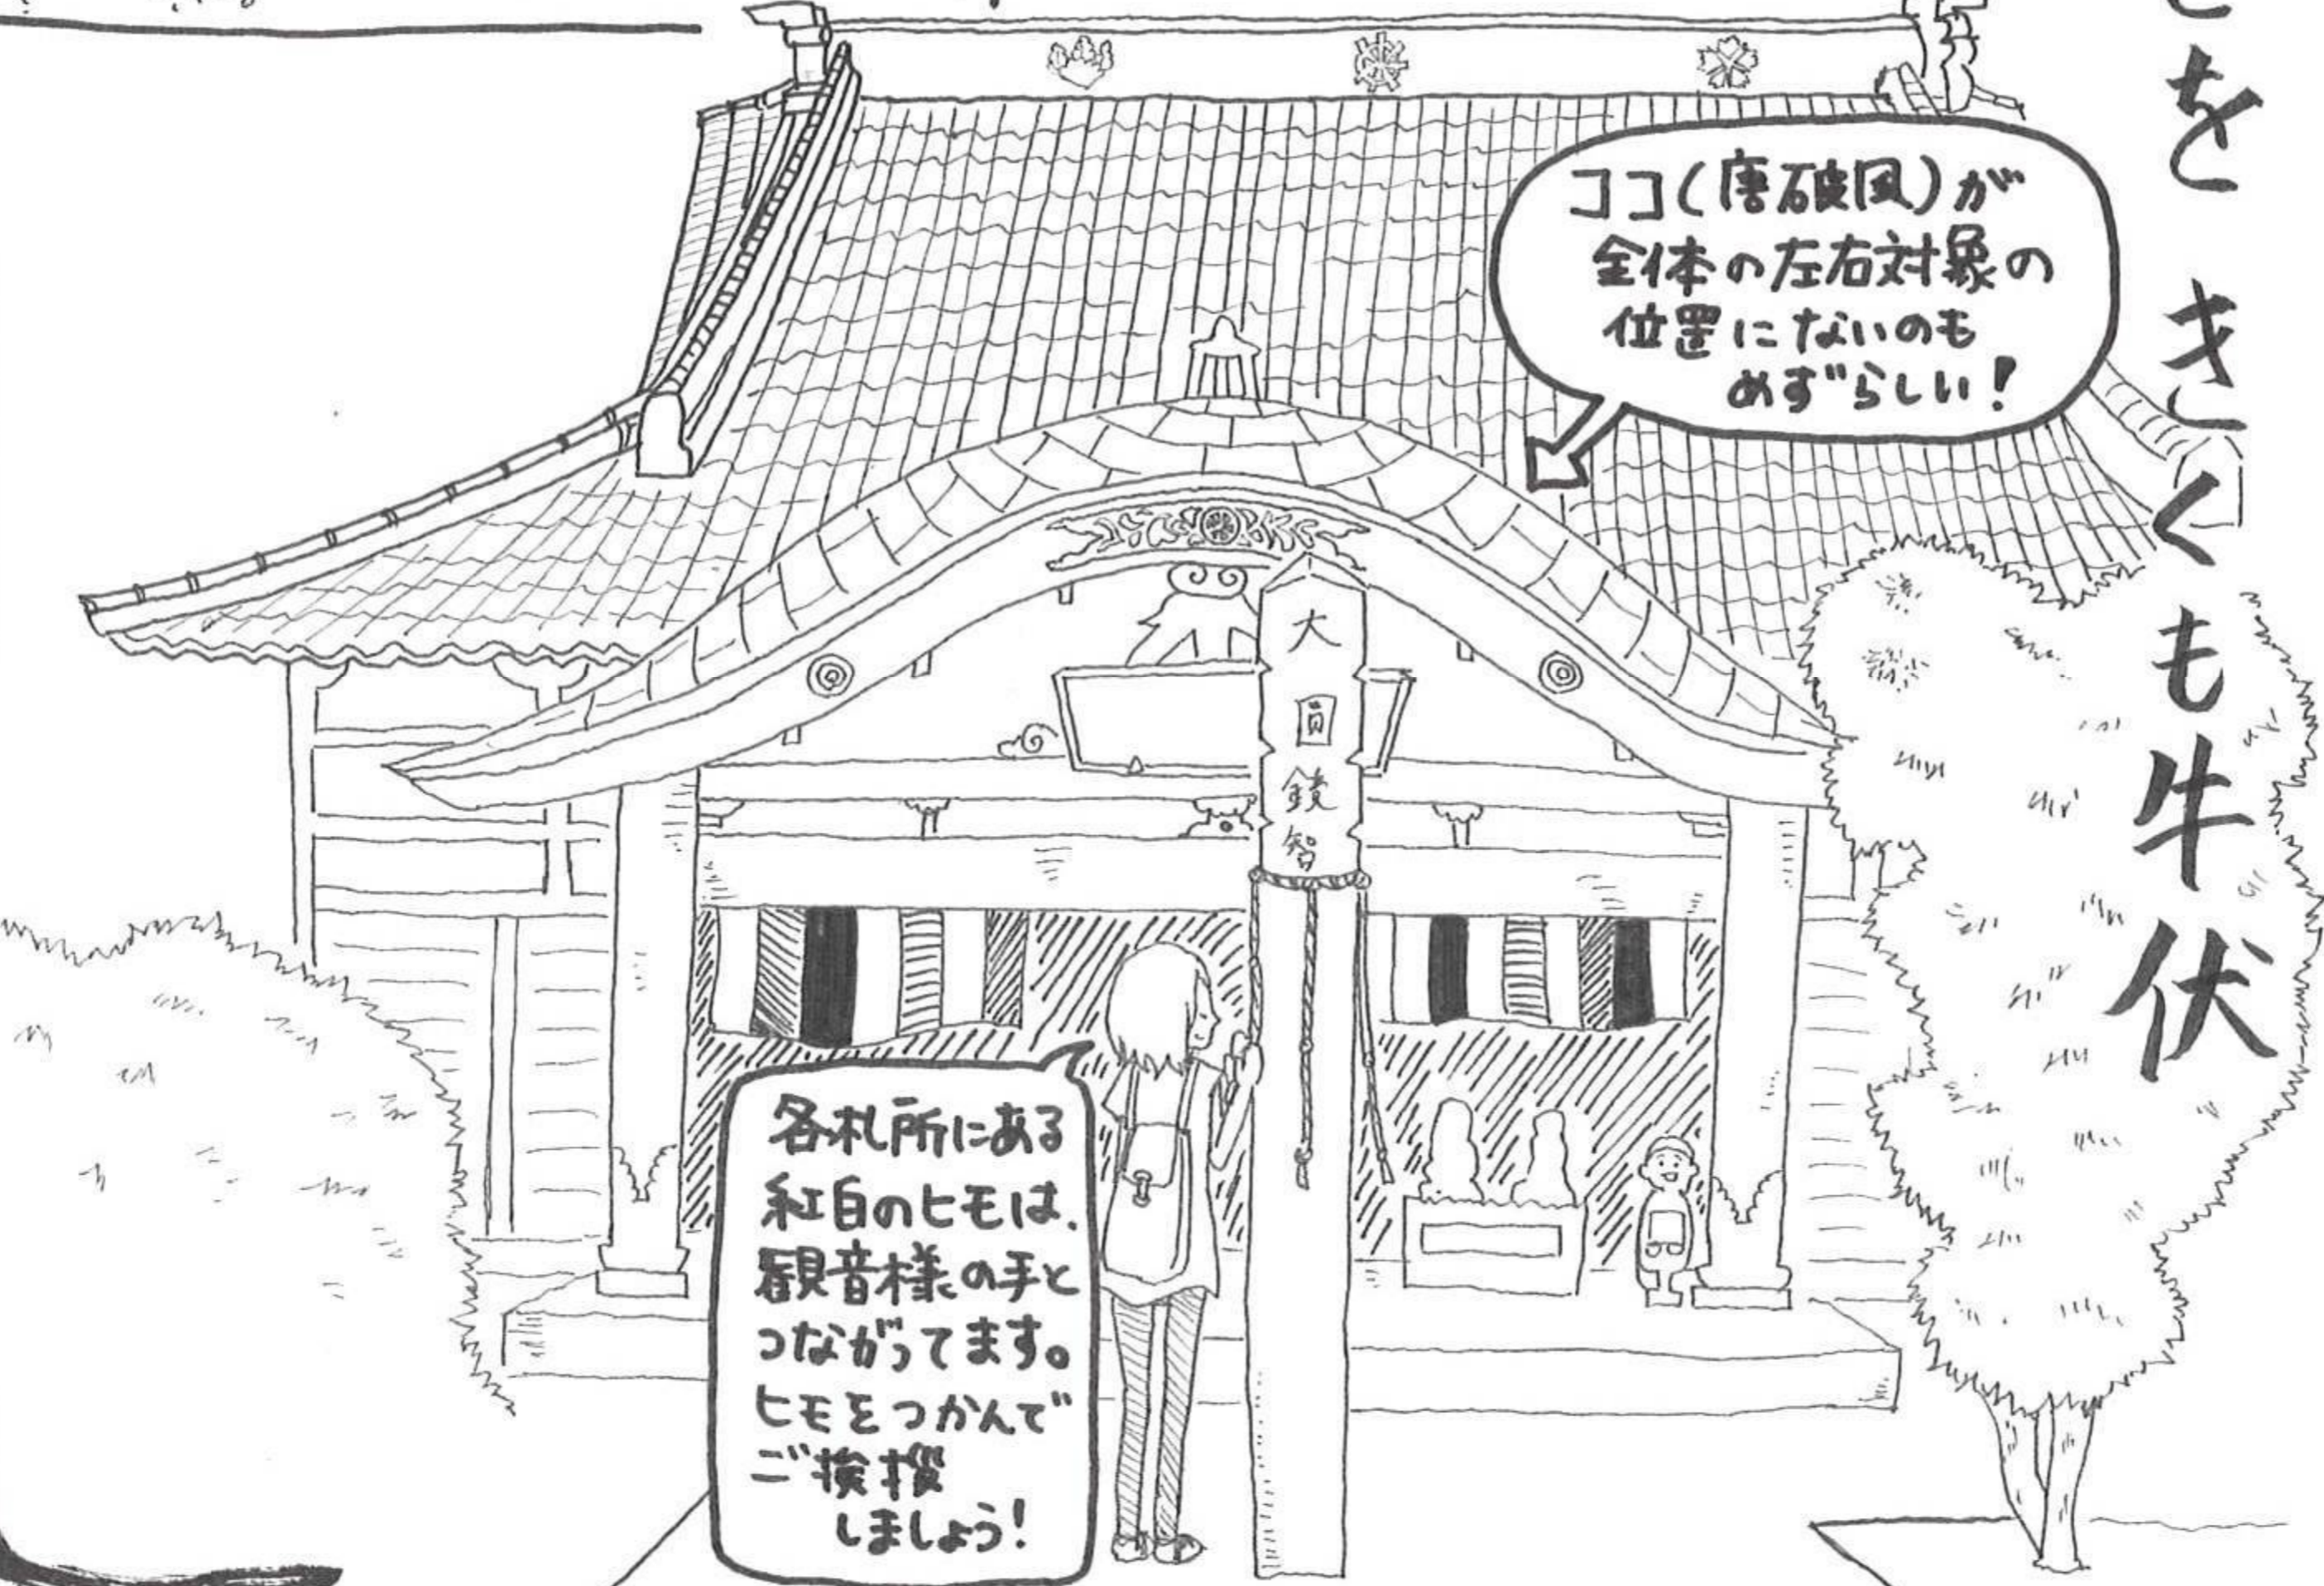 をきくも牛伏
ココ(唐破風)が
全体の左右対象の
位置にないのも
めずらしい!
大圓鏡智
各札所にある
紅白のヒモは、
観音様の手と
つながってます。
ヒモをつかんで
ご挨拶
しましょう!